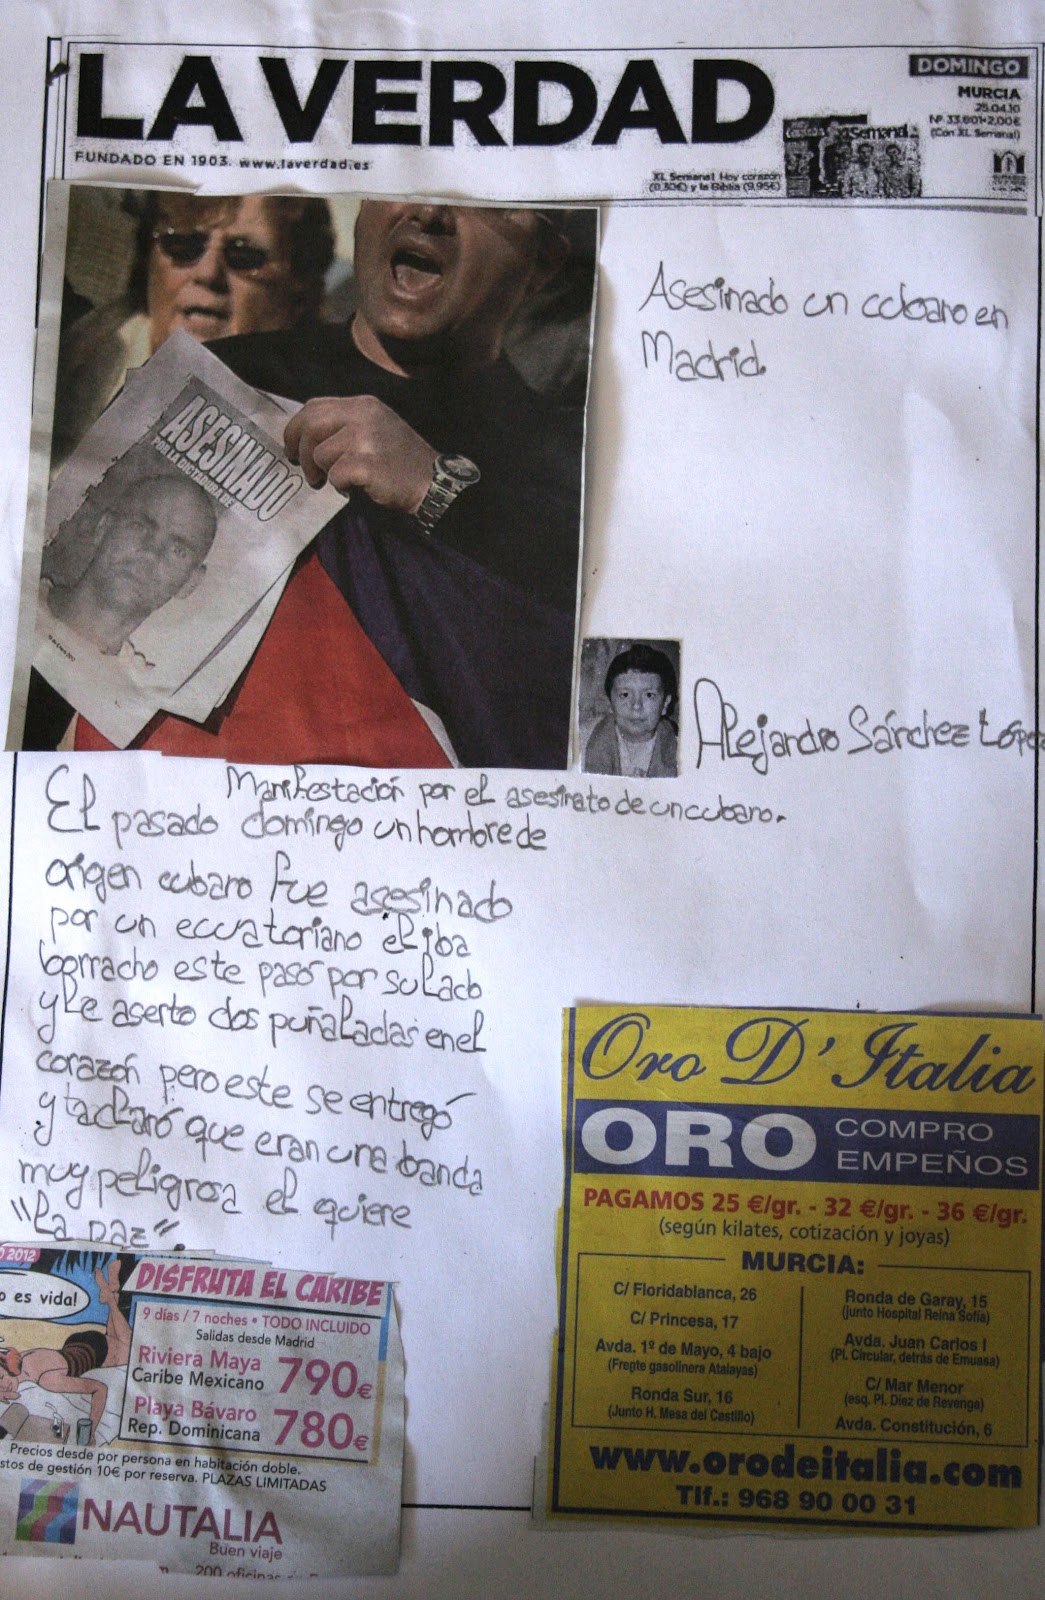 LA VERDAD
FUNDADO EN 1903. www.laverdad.es
DOMINGO
MURCIA
25.04.10
Nº 33.601•2,00€
(Con XL Semanal)
XLSemanal
XL Semanal Hoy corazón
(0,30€) y la Biblia (9,95€)
ASESINADO
POR LA DICTADURA DE
Asesinado un cubano en
Madrid.
Alejandro Sánchez López
Manifestación por el asesinato de un cubano.
El pasado domingo un hombre de
origen cubano fue asesinado
por un ecuatoriano él iba
borracho este pasó por su lado
y le aserto dos puñaladas en el
corazón pero este se entregó
que eran una banda
muy peligrosa el quiere
"La paz".
O 2012
o es vida!
DISFRUTA EL CARIBE
9 días / 7 noches • TODO INCLUIDO
Salidas desde Madrid
Riviera Maya
Caribe Mexicano 790€
Playa Bávaro
Rep. Dominicana 780€
Precios desde por persona en habitación doble.
stos de gestión 10€ por reserva. PLAZAS LIMITADAS
NAUTALIA
Buen viaje
200 oficinas
Oro D'Italia
ORO COMPRO
EMPEÑOS
PAGAMOS 25 €/gr. - 32 €/gr. - 36 €/gr.
(según kilates, cotización y joyas)
MURCIA:
C/ Floridablanca, 26
C/ Princesa, 17
Avda. 1º de Mayo, 4 bajo
(Frente gasolinera Atalayas)
Ronda Sur, 16
(Junto H. Mesa del Castillo)
Ronda de Garay, 15
(junto Hospital Reina Sofía)
Avda. Juan Carlos I
(Pl. Circular, detrás de Emuasa)
C/ Mar Menor
(esq. Pl. Díez de Revenga)
Avda. Constitución, 6
www.orodeitalia.com
Tlf.: 968 90 00 31